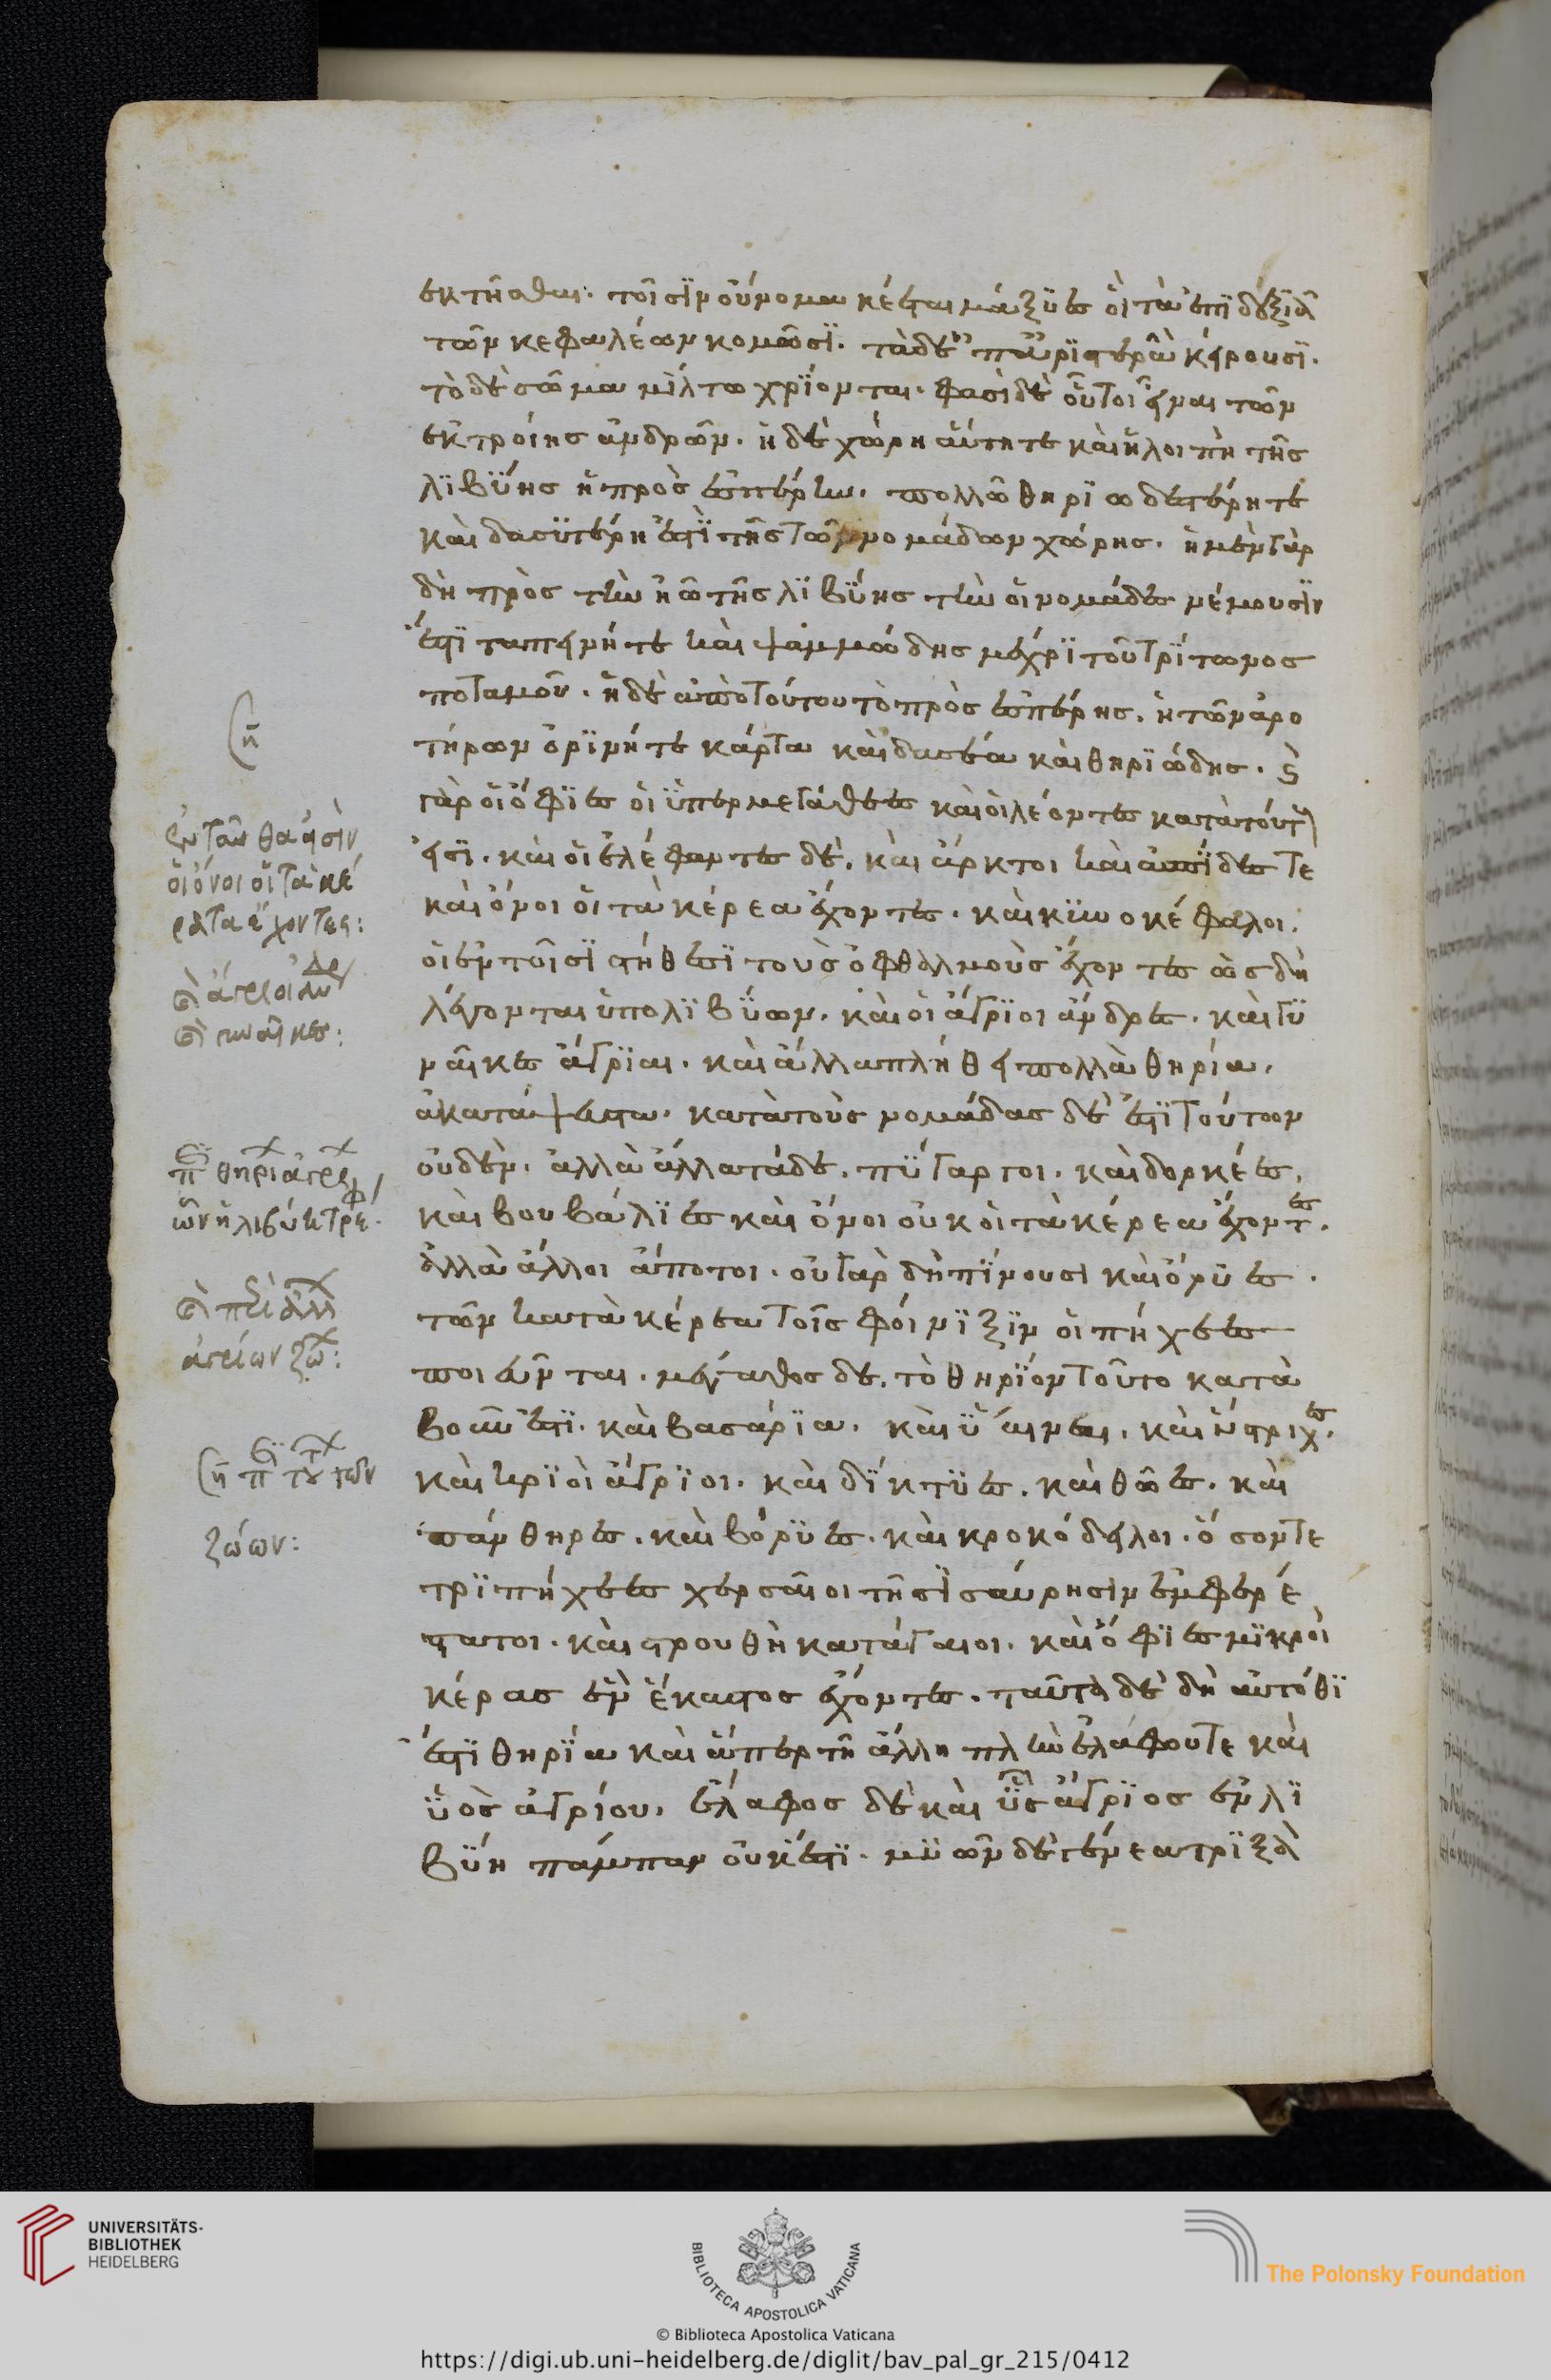 ἐκτῆσθαι· τοῖσϊν οὔνομα κέεται μάξϋες οἳ τὰ ἐπϊδεξϊὰ
τῶν κεφαλέων κομῶσϊ· τὰ δ' ἐπ' ἀρϊστερὰ κείρουσϊ·
τὸ δὲ σῶμα μίλτω χρϊονται· φασὶ δὲ οὗτοι εἶναι τῶν
ἐκ τροίης ἀνδρῶν· ἡ δὲ χώρη αὕτη τε καὶ ἡ λοιπὴ τῆς
λϊβϋης ἡ πρὸς ἑσπέρην, πολλῶ θηρϊωδεστέρη τε
καὶ δασϋτέρη ἐστϊ τῆς τῶν νομάδων χώρης· ἡ μὲν γὰρ
δὴ πρὸς τὴν ἠῶ τῆς λϊβϋης τὴν οἱ νομάδες νέμουσϊν
ἐστϊ ταπεινή τε καὶ ψαμμώδης μέχρϊ τοῦ τρϊτωνος
ποταμοῦ· ἡ δὲ ἀπὸ τούτου τὸ πρὸς ἑσπέρης, ἡ τῶν ἀρο
τήρων ὀρϊνή τε κάρτα καὶ δασέα καὶ θηρϊώδης· καὶ
γὰρ οἱ ὄφϊες οἱ ὑπερμεγάθεες καὶ οἱ λέοντες κατὰ τούτους
εἰσϊ· καὶ οἱ ἐλέφαντές δὲ, καὶ ἄρκτοι καὶ ἀσπϊδες τε
καὶ ὄνοι οἱ τὰ κέρεα ἔχοντες· καὶ κϋνοκέφαλοι·
οἱ ἐν τοῖσϊ στήθεσϊ τοὺς ὀφθαλμοὺς ἔχοντες ὡς δὴ
λέγονται ὑπὸ λϊβϋων, καὶ οἱ ἄγρϊοι ἄνδρες, καὶ γϋ
ναῖκες ἄγρϊαι· καὶ ἄλλα πλήθει πολλὰ θηρία,
ἀκατάψεστα· κατὰ τοὺς νομάδας δὲ ἐστϊ τούτων
οὐδὲν, ἀλλὰ ἄλλα τάδε, πϋγαργοι, καὶ δορκέες,
καὶ βουβάλϊες καὶ ὄνοι οὐκ οἱ τὰ κέρεα ἔχοντες·
ἀλλὰ ἄλλοι ἄποτοι· οὐ γὰρ δὴ πϊνουσι καὶ ὄρϋες·
τῶν κατὰ κέρεα τοῖς φόινϊξϊν οἱ πήχεες
ποιεῦνται· μέγαθος δὲ, τὸ θηρϊον τοῦτο κατὰ
βοῦν ἐστϊ· καὶ βασάρϊα, καὶ ὕαιναι, καὶ ὕστριχες·
καὶ κρϊοὶ ἄγρϊοι, καὶ δϊκτϋες, καὶ θῶες, καὶ
πάνθηρες, καὶ βόρϋες, καὶ κροκόδειλοι, ὅσον τε
τρϊπήχεες χερσαῖοι τῆσϊ σαύρησϊν ἐμφερέ
στατοι· καὶ στρουθὴ κατάγαιοι, καὶ ὄφϊες μϊκροὶ
κέρας ἓν ἕκαστος ἔχοντες· ταῦτα δὲ δὴ αὐτόθϊ
ἐστϊ θηρϊα καὶ ἅπερ τῆ ἄλλη πλὴν ἐλάφου τε καὶ
ὑὸς ἀγρίου, ἔλαφος δὲ καὶ ὗς ἄγρϊος ἐν λϊ
βϋη πάμπαν οὐκ ἔστϊ· μϋῶν δὲ γένεα τρϊξὰ
ἐνταῦθα εἰσὶν
οἱ ὄνοι οἱ τὰ κέ
ρατα ἔχοντες:
καὶ ἄγριοι ἄνδρες
καὶ γυναῖκες:
περὶ θηρί
ὧν ἡ λιβύη τρέφει
καὶ περὶ ἄλλων
ἀγρίων ζώων:
περὶ τούτων
ζώων:
UNIVERSITÄTS-
BIBLIOTHEK
HEIDELBERG
BIBLIOTECA APOSTOLICA VATICANA
The Polonsky Foundation
© Biblioteca Apostolica Vaticana
https://digi.ub.uni-heidelberg.de/diglit/bav_pal_gr_215/0412